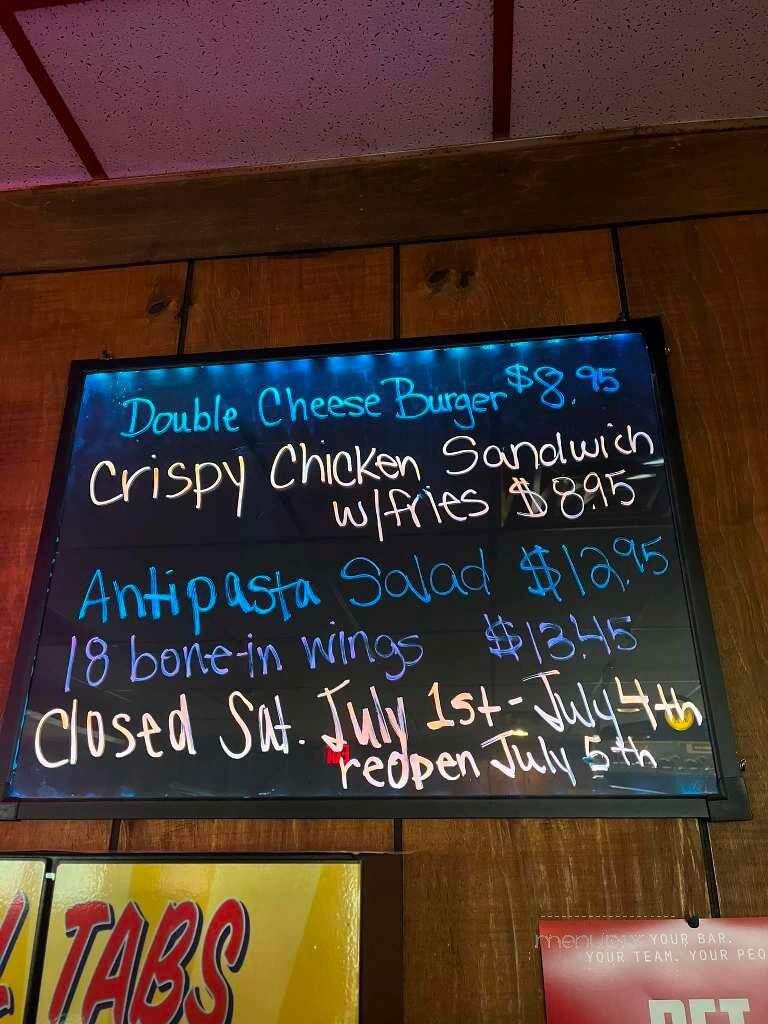 Double Cheese Burger $8.95
Crispy Chicken Sandwich
w/fries $8.95
Antipasta Salad $12.95
18 bone-in wings $13.45
Closed Sat. July 1st - July 4th
reopen July 5th
TABS
menupix YOUR BAR.
YOUR TEAM. YOUR PEO